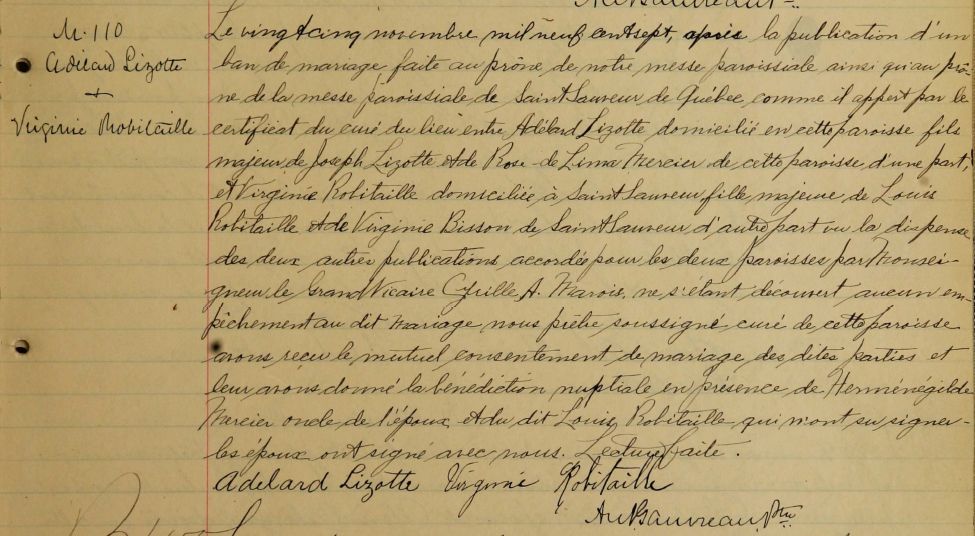 M. 110
Adélard Lizotte
+
Virginie Robitaille
Le vingt cinq novembre, mil neuf cent sept, après la publication d'un
ban de mariage faite au prône de notre messe paroissiale ainsi qu'au prô-
ne de la messe paroissiale de Saint Sauveur de Québec comme il appert par le
certificat du curé du lieu entre Adélard Lizotte domicilié en cette paroisse fils
majeur de Joseph Lizotte et de Rose-de Lima Mercier de cette paroisse d'une part,
et Virginie Robitaille domiciliée à Saint Sauveur fille majeure de Louis
Robitaille et de Virginie Bisson de Saint Sauveur d'autre part vu la dispense
des deux autres publications accordés pour les deux paroisses par Monsei-
gneur le Grand Vicaire Cyrille A. Marois, ne s'étant découvert aucun em-
pêchement au dit mariage nous prêtre soussigné curé de cette paroisse
avons reçu le mutuel consentement de mariage des dites parties et
leur avons donné la bénédiction nuptiale en présence de Herménégilde
Mercier oncle de l'époux et du dit Louis Robitaille qui n'ont su signer-
les époux ont signé avec nous. Lecture faite.
Adelard Lizotte Virginie Robitaille
Ptre